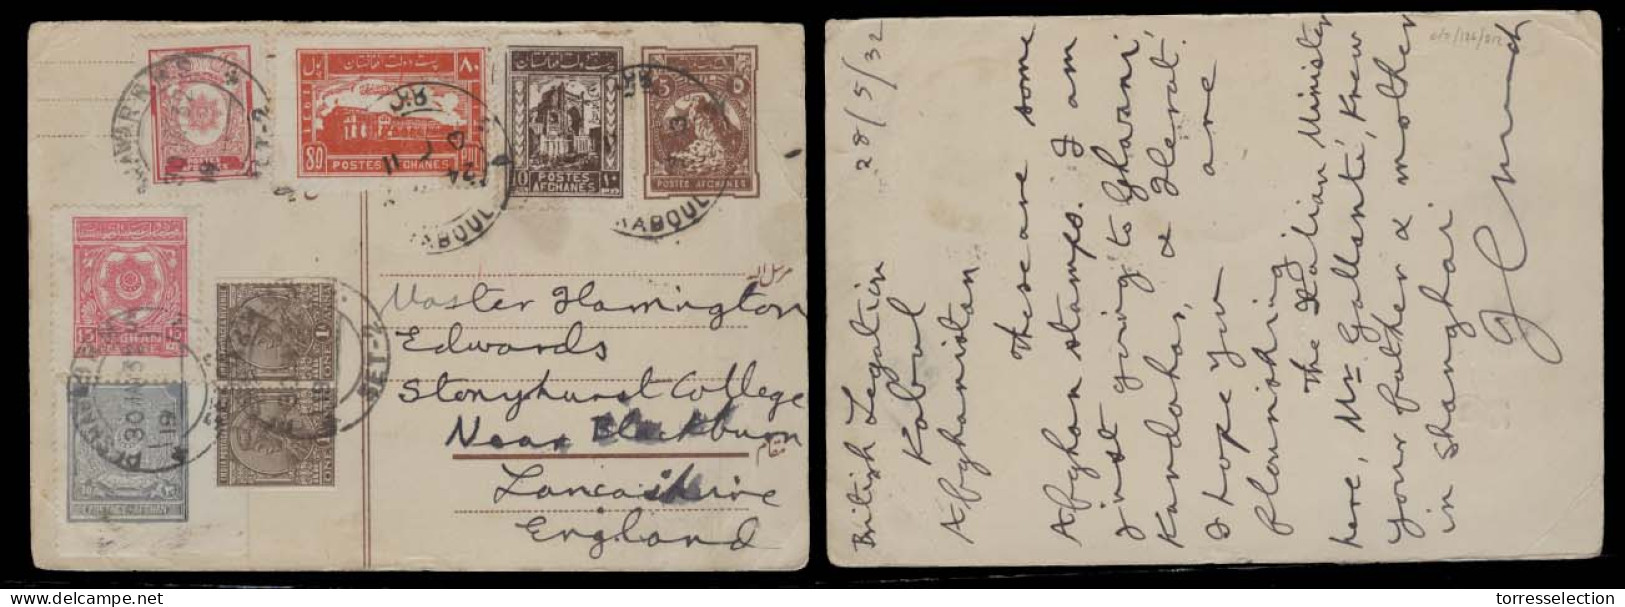 POSTES AFGHANES
٨٠
80
POSTES AFGHANES
10 POSTES AFGHANES ١٠
5 ٥
POSTES AFGHANES
KABOUL
KABOUL
PESHAWAR
30 JUN 32
SET-2
ONE
ONE
Master Harrington
Edwards
Stonyhurst College
Near Blackburn
Lancashire
England
British Legation 28/5/32
Kabul
Afghanistan
These are some
Afghan stamps. I am
just going to Ghazni,
Kandahar, & Herat.
I hope you are
flourishing
The Italian Minister
here, Mr Gallanté, knew
your father & mother
in Shanghai
torresselection